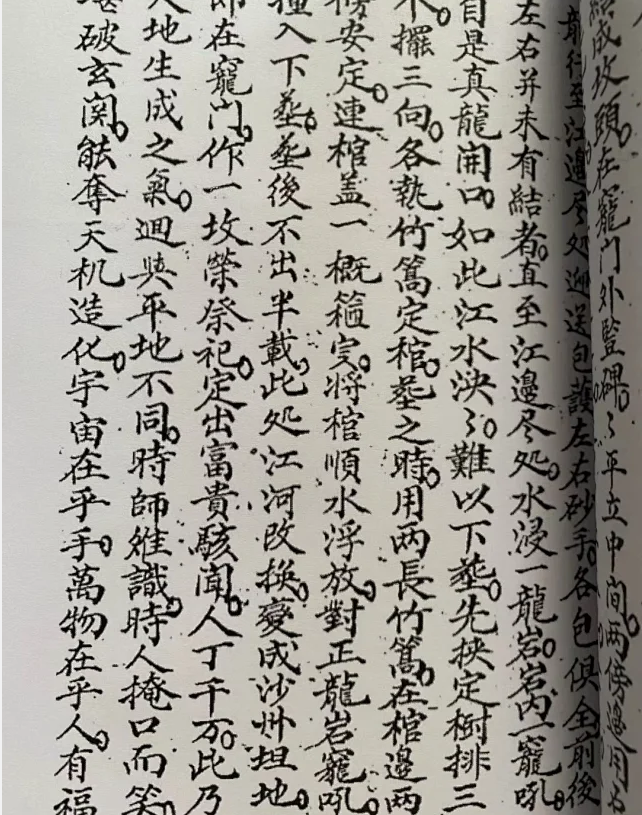 結成坟頭。在竉门外豎碑。〻平立中间。两傍邊用
龍行至江邊尽处迎送包護左右砂手。各包俱全前後
左右并未有結者。直至江邊尽处。水浸一龍岩。岩内一竉吼。
目是真龍開口。如此江水泱〻。難以下塟。先挾定樹排三
个。擺三向。各執竹篙定棺。塟之時。用两長竹篙。在棺邊两
傍安定。連棺盖一概箍定。将棺順水浮放。對正龍岩竉吼。
撞入下塟。塟後不出半載。此处江河改换。變成沙州坦地。
即在竉门。作一坟塋祭祀。定出富貴駭聞。人丁千万。此乃
天地生成之氣。迥與平地不同。時師雖識。時人掩口而笑。
破玄関。能奪天机造化。宇宙在乎手。萬物在乎人。有福